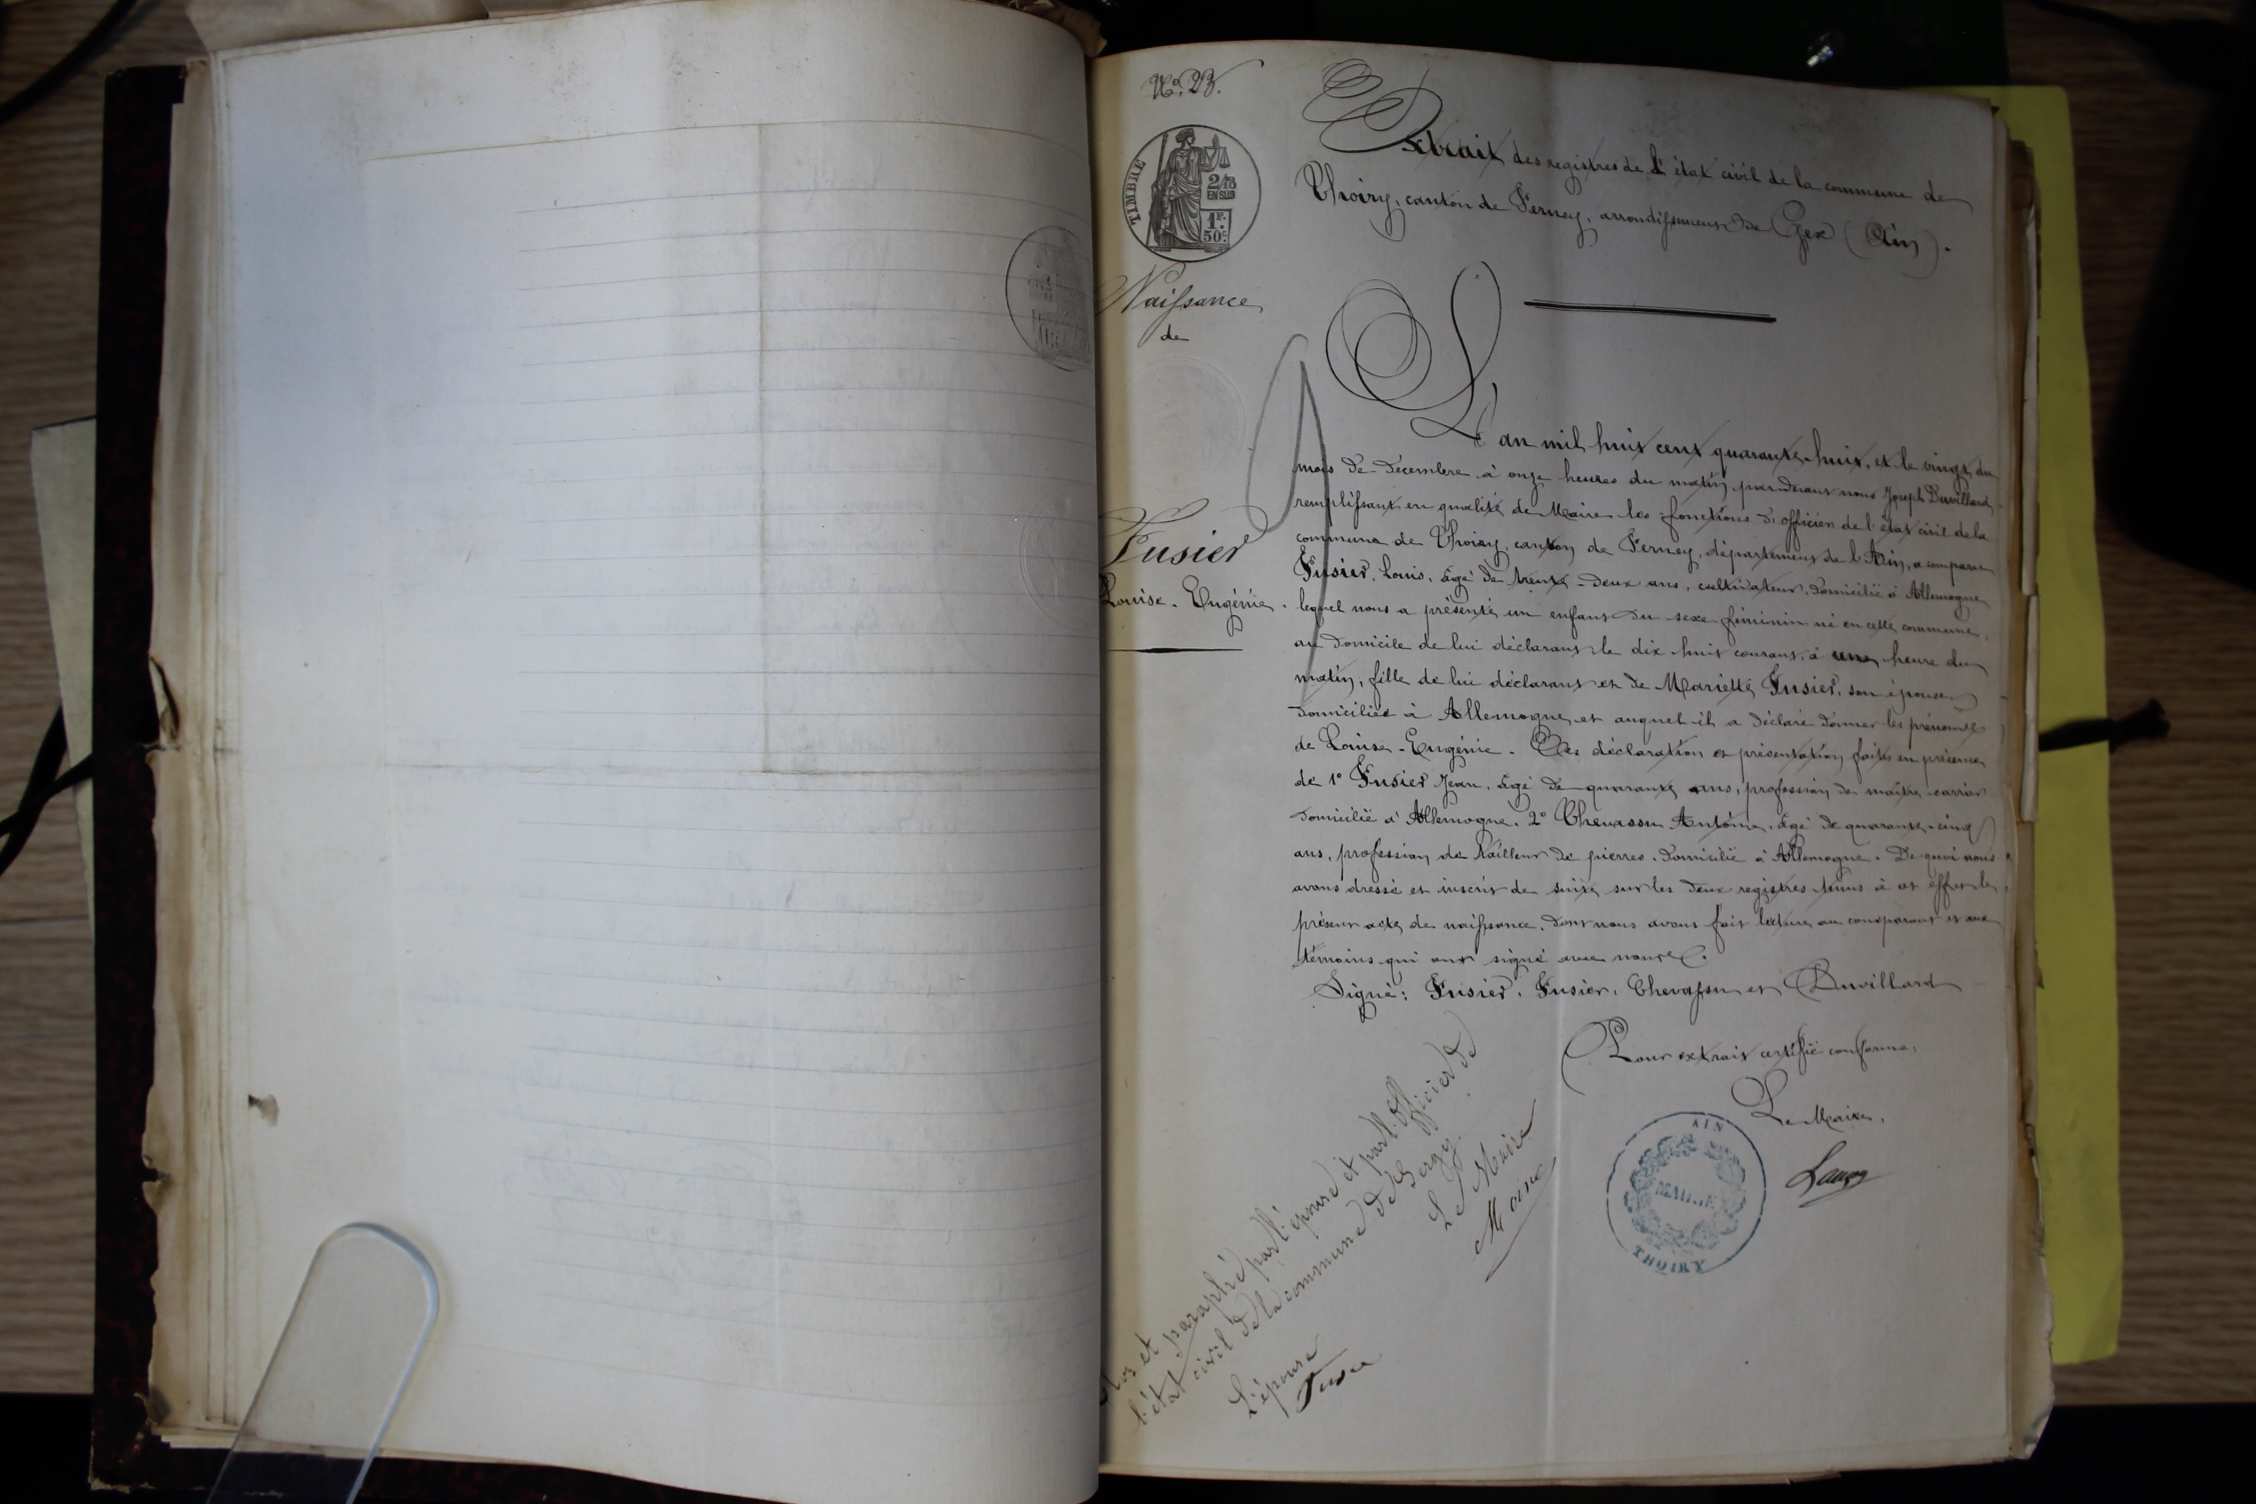 No. 23.
TIMBRE
2/10
EN SUS
1F.
50c.
Extrait des registres de l'état civil de la commune de
Thoiry, canton de Ferney, arrondissement de Gex (Ain).
Naissance
de
Fusier
Louise-Eugénie.
L'an mil huit cent quarante-huit, et le vingt du
mois de décembre à onze heures du matin par devant nous Joseph Duvillard
remplissant en qualité de Maire les fonctions d'officier de l'état civil de la
commune de Thoiry, canton de Ferney, département de l'Ain, a comparu
Fusier, Louis, âgé de trente-deux ans, cultivateur, domicilié à Allemogne
lequel nous a présenté un enfant du sexe féminin né en cette commune,
au domicile de lui déclarant le dix huit courant, à une heure du
matin, fille de lui déclarant et de Mariette Fusier, son épouse
domiciliée à Allemogne et auquel il a déclaré donner les prénoms
de Louise-Eugénie. Les déclaration et présentation faites en présence
de 1° Fusier Jean, âgé de quarante ans, profession de maître carrier
domicilié à Allemogne. 2° Chevassu Antoine, âgé de quarante-cinq
ans, profession de tailleur de pierres, domicilié à Allemogne. De quoi nous
avons dressé et inscrit de suite sur les deux registres tenus à cet effet le
présent acte de naissance, dont nous avons fait lecture au comparant et aux
témoins qui ont signé avec nous.
Signé: Fusier, Fusier, Chevassu et Duvillard
Pour extrait certifié conforme,
Le Maire,
AIN
MAIRIE
THOIRY
et paraphé par l'épouse et par l'Officier de
l'état civil de la commune de Sergy
Le Maire
Moine
L'épouse